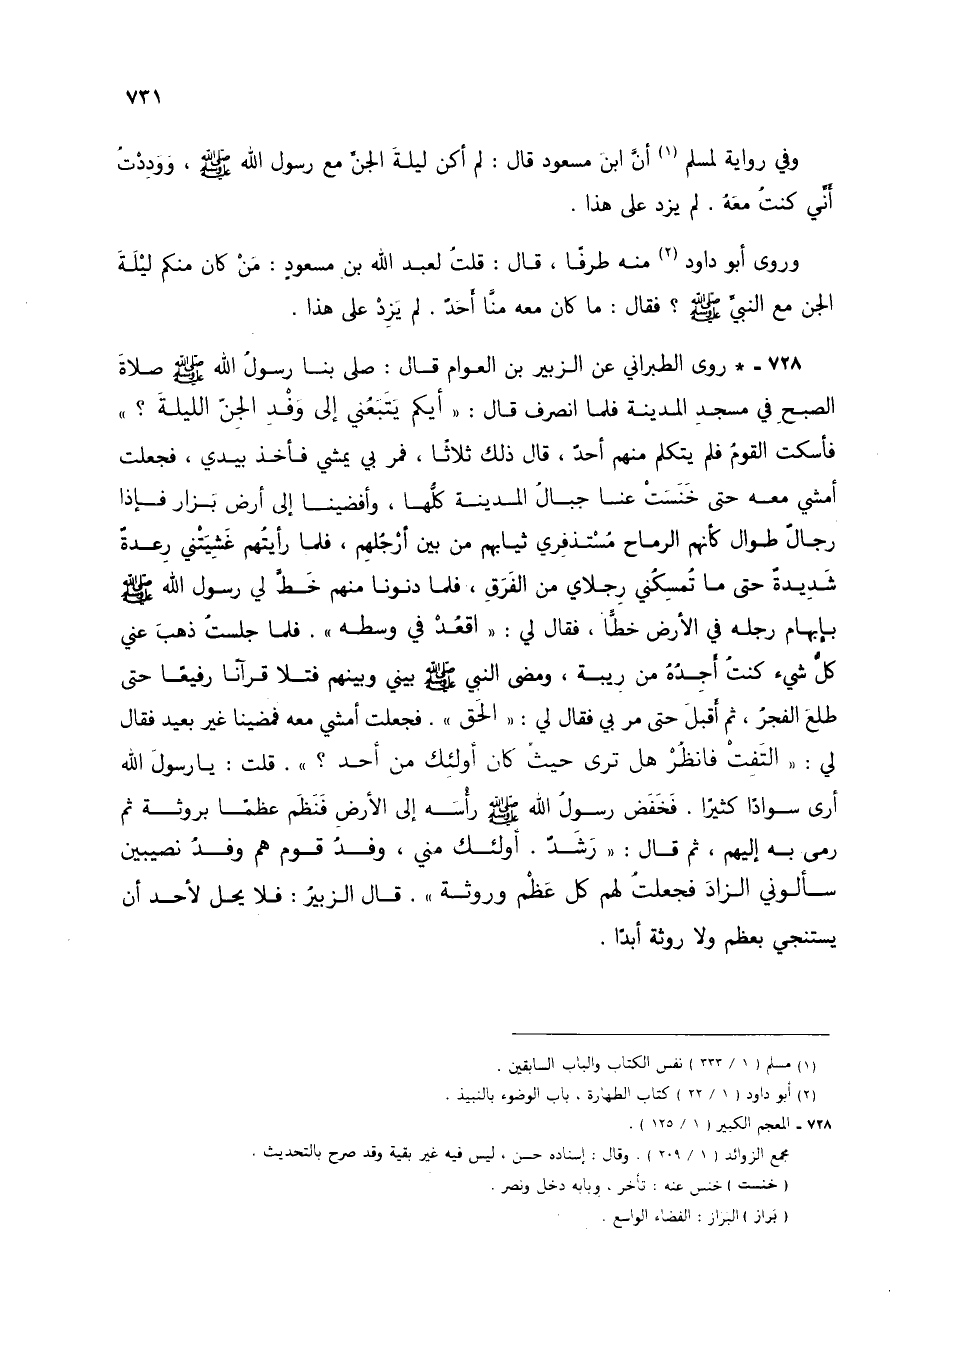 ٧٣١
وفي رواية لمسلم (١) أنَّ ابنَ مسعود قال : لم أكن ليلةَ الجنِّ مع رسول الله ﷺ ، وَوَدِدْتُ
أنَّي كنتُ معَهُ . لم يزد على هذا .
وروى أبو داود (٢) منه طرفًا ، قال : قلتُ لعبد الله بن مسعودٍ : مَنْ كان منكم ليْلَةَ
الجن مع النبيِّ ﷺ ؟ فقال : ما كان معه منَّا أحَدٌ . لم يَزِدْ على هذا .
٧٢٨ ـ * روى الطبراني عن الزبير بن العوام قال : صلى بنا رسولُ الله ﷺ صلاةَ
الصبحِ في مسجد المدينة فلما انصرف قال : « أيكم يَتَبَعُني إلى وَفْدِ الجنِّ الليلةَ ؟ »
فأسكت القومُ فلم يتكلم منهم أحدٌ ، قال ذلك ثلاثًا ، فمر بي يمشي فأخذ بيدي ، فجعلت
أمشي معه حتى خَنَسَتْ عنا جبالُ المدينة كلُّها ، وأفضينا إلى أرض بَزار فإذا
رجالٌ طوال كأنهم الرماح مُسْتذفري ثيابهم من بين أرْجُلهم ، فلما رأيتُهم غَشِيَتْني رعدةٌ
شَديدةٌ حتى ما تُمسِكُني رجلاي من الفَرَقِ ، فلما دنونا منهم خَطَّ لي رسول الله ﷺ
بإبهام رجله في الأرض خطًّا ، فقال لي : « اقعُدْ في وسطه » . فلما جلستُ ذهبَ عني
كلُّ شيء كنتُ أجِدُهُ من ريبة ، ومضى النبي ﷺ بيني وبينهم فتلا قرآنا رفيعًا حتى
طلعَ الفجرُ ، ثم أقبلَ حتى مر بي فقال لي : « الحَق » . فجعلت أمشي معه فمضينا غير بعيد فقال
لي : « التَفِتْ فانظُرْ هل ترى حيثُ كان أولئك من أحد ؟ » . قلت : يارسولَ الله
أرى سوادًا كثيرًا . فَخَفَض رسولُ الله ﷺ رأسَه إلى الأرضِ فَنَظَم عظمًا بروثة ثم
رمى به إليهم ، ثم قال : « رَشَدٌ . أولئك مني ، وفدُ قوم هم وفدُ نصيبين
سألوني الزادَ فجعلتُ لهم كل عَظْم وروثة » . قال الزبيرُ : فلا يحل لأحد أن
يستنجي بعظم ولا روثة أبدًا .
(١) مسلم ( ١ / ٣٣٣ ) نفس الكتاب والباب السابقين .
(٢) أبو داود ( ١ / ٢٢ ) كتاب الطهارة ، باب الوضوء بالنبيذ .
٧٢٨ ـ المعجم الكبير ( ١ / ١٢٥ ) .
مجمع الزوائد ( ١ / ٢٠٩ ) . وقال : إسناده حسن ، ليس فيه غير بقية وقد صرح بالتحديث .
( خنست ) خنس عنه : تأخر ، وبابه دخل ونصر .
( بَراز ) البَراز : الفضاء الواسع .